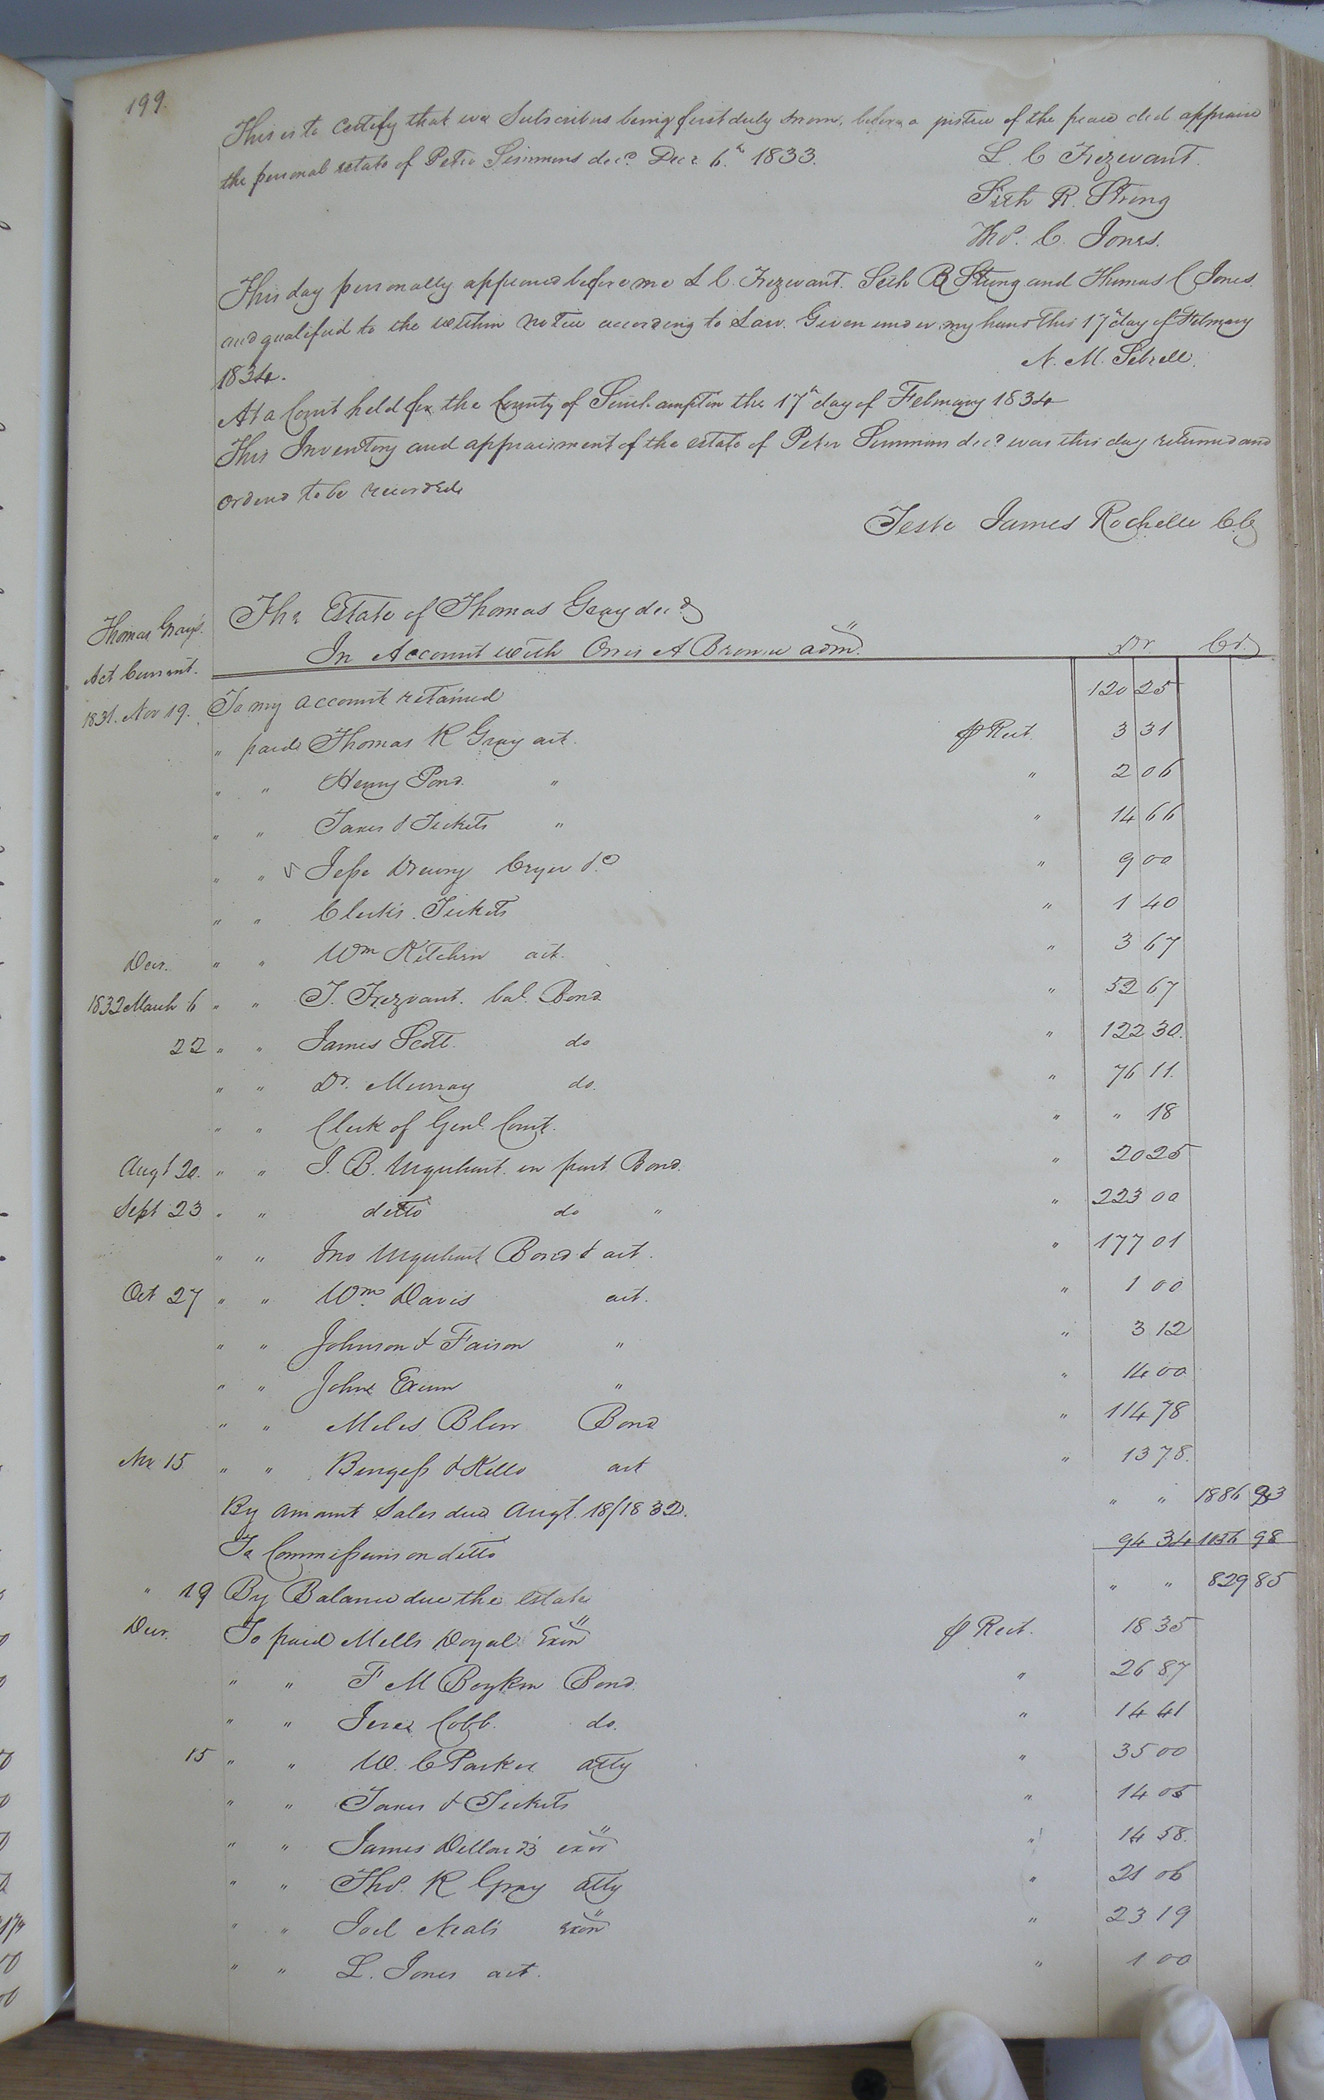 199.
This is to certify that we Subscribers being first duly sworn, before a justice of the peace did appraise
the personal estate of Peter Simmons decd. Decr. 6th 1833.
L. C. Trezevant.
Seth R. Strong
Thos. C. Jones.
This day personally appeared before me L C. Trezevant. Seth B Strong and Thomas C Jones
and qualified to the within notice according to Law. Given under my hand this 17th day of February
1834.
N. M. Sebrell.
At a Court held for the County of Southampton the 17th day of February 1834
This Inventory and appraisment of the estate of Peter Simmons decd was this day returned and
Ordered to be recorded
Teste James Rochelle C.C.
The Estate of Thomas Gray decd
Thomas Gray's.
In Account with Orris A Browne adm. Dr. Cr.
Act Current.
1831. Nov 19. To my account retained 120 25
" paid Thomas R Gray act. pr Rect. 3 31
" " Henry Pond " " 2 06
" " Taxes & Tickets " " 14 66
" " Jesse Drewry Cryer do " 9 00
" " Clerk's Tickets " 1 40
Decr. " " Wm Kitchen act. " 3 67
1832 March 6 " " T. Trezvant. bal. Bond " 52 67
22 " " James Scott. do " 122 30.
" " Dr. Murray do. " 76 11.
" " Clerk of Genl. Court. " " 18
Augt 20. " " J. B. Urquhart. in part Bond. " 20 25
Sept 23 " " ditto do " " 223 00
" " Jno Urquhart Bond & act. " 177 01
Oct 27 " " Wm Davis act. " 1 00
" " Johnson & Faison " " 3 12
" " John Exum " " 14 00
" " Miles Blow Bond " 114 78
Nov 15 " " Burgess & Kello act " 13 78.
By amount Sales due Augt. 18/1832. " " 1886 83
To Commissions on ditto 94 34 1056 98
" 19 By Balance due the estate " " 829 85
Decr. To paid Mills Doyal Exor pr Rect. 18 35
" " F M Boykin Bond. " 26 87
" " Jere Cobb. do. " 14 41
15 " " W. C Parker atty " 35 00
" " Taxes & Tickets " 14 05
" " James Dillard's exor " 14 58.
" " Thos. R Gray atty " 21 06
" " Joel Neal's exor " 23 19
" " L. Jones act. " 1 00